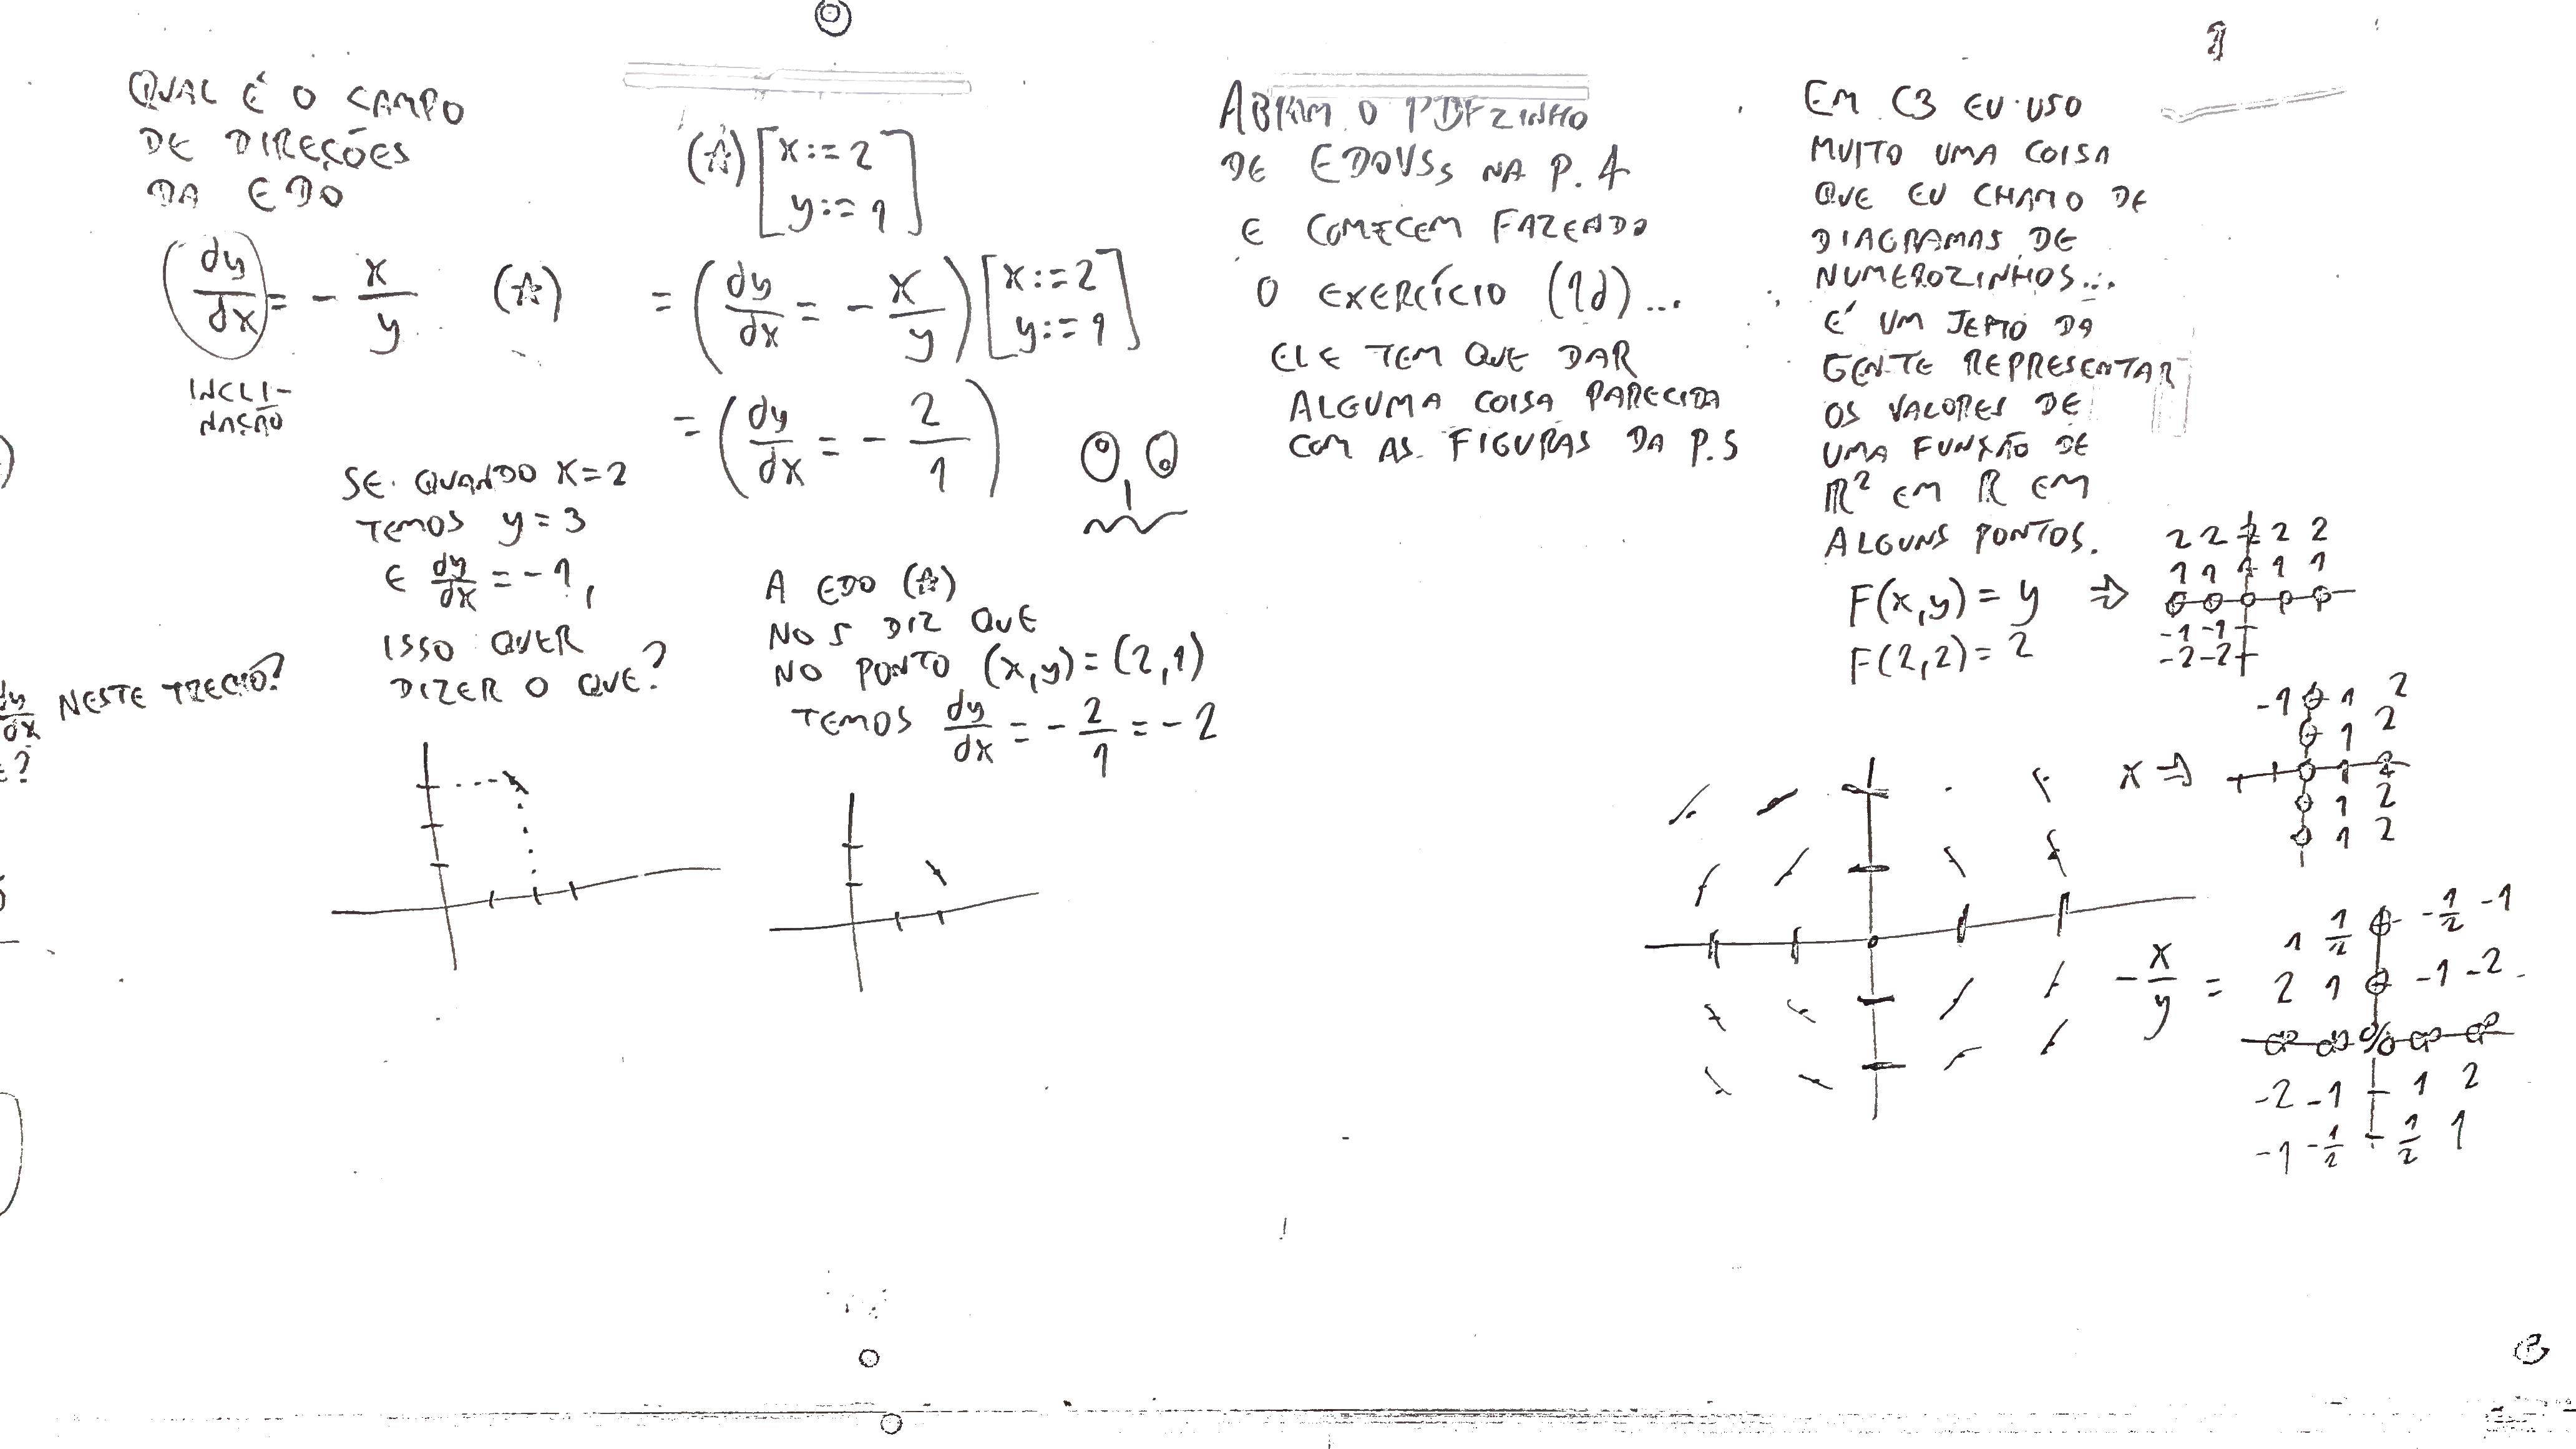 QUAL É O CAMPO
DE DIREÇÕES
DA EDO
dy/dx = - x/y (☆)
INCLI-
NAÇÃO
SE QUANDO X=2
TEMOS y=3
E dy/dx = -1,
ISSO QUER
DIZER O QUE?
dy/dx NESTE TRECHO?
E?
(☆) [x:=2
y:=1]
= (dy/dx = - x/y) [x:=2
y:=1]
= (dy/dx = - 2/1)
A EDO (☆)
NOS DIZ QUE
NO PONTO (x,y)=(2,1)
TEMOS dy/dx = - 2/1 = -2
ABRAM O PDFZINHO
DE EDOVSs NA P. 4
E COMECEM FAZENDO
O EXERCÍCIO (1d)...
ELE TEM QUE DAR
ALGUMA COISA PARECIDA
COM AS FIGURAS DA P.5
1
EM C3 EU USO
MUITO UMA COISA
QUE EU CHAMO DE
DIAGRAMAS DE
NUMEROZINHOS...
É UM JEITO DA
GENTE REPRESENTAR
OS VALORES DE
UMA FUNÇÃO DE
R² EM R EM
ALGUNS PONTOS.
F(x,y) = y ⇒
F(2,2) = 2
2 2 2 2 2
1 1 1 1 1
0 0 0 0 0
-1 -1
-2 -2
x ⇒
-1 0 1 2
0 1 2
0 1 2
0 1 2
0 1 2
- x/y =
1 1/2 0 -1/2 -1
2 1 0 -1 -2
∞ ∞ % ∞ ∞
-2 -1 1 2
-1 -1/2 1/2 1